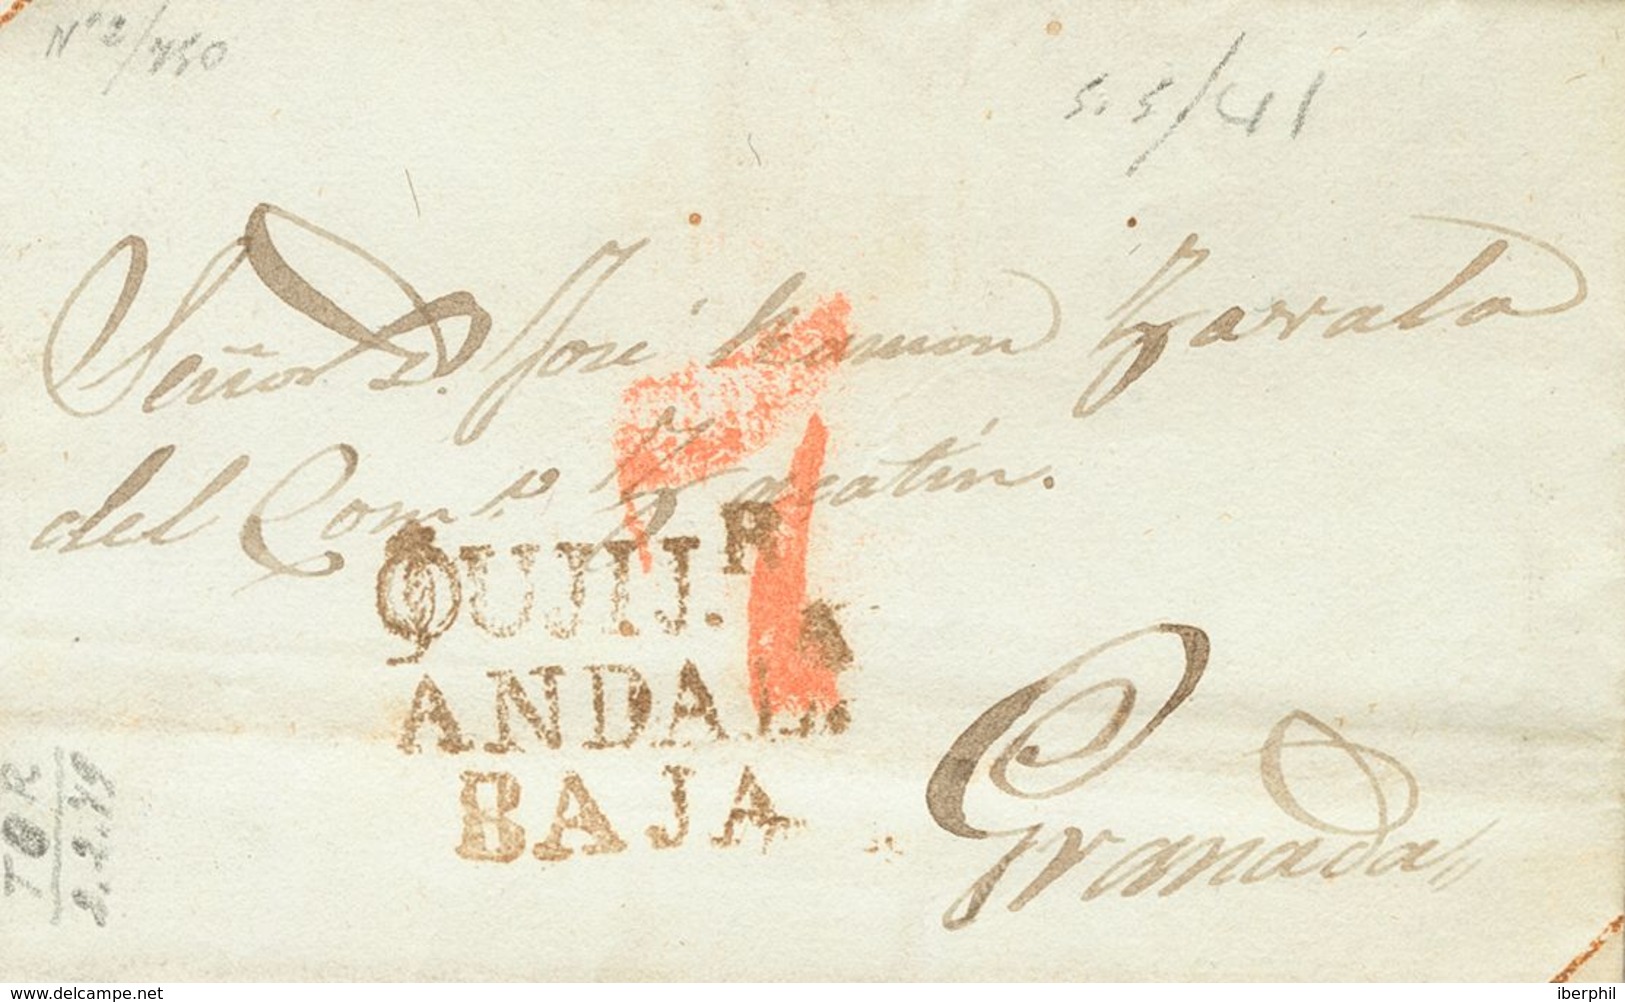 Nº 2/750
S.5/41
Señor D. José Ramon Zavala
del Comº Zacatín.
7
QUIJ.R
ANDAL.A
BAJA
Granada
TOR
2.2.49
www.delcampe.net
iberphil